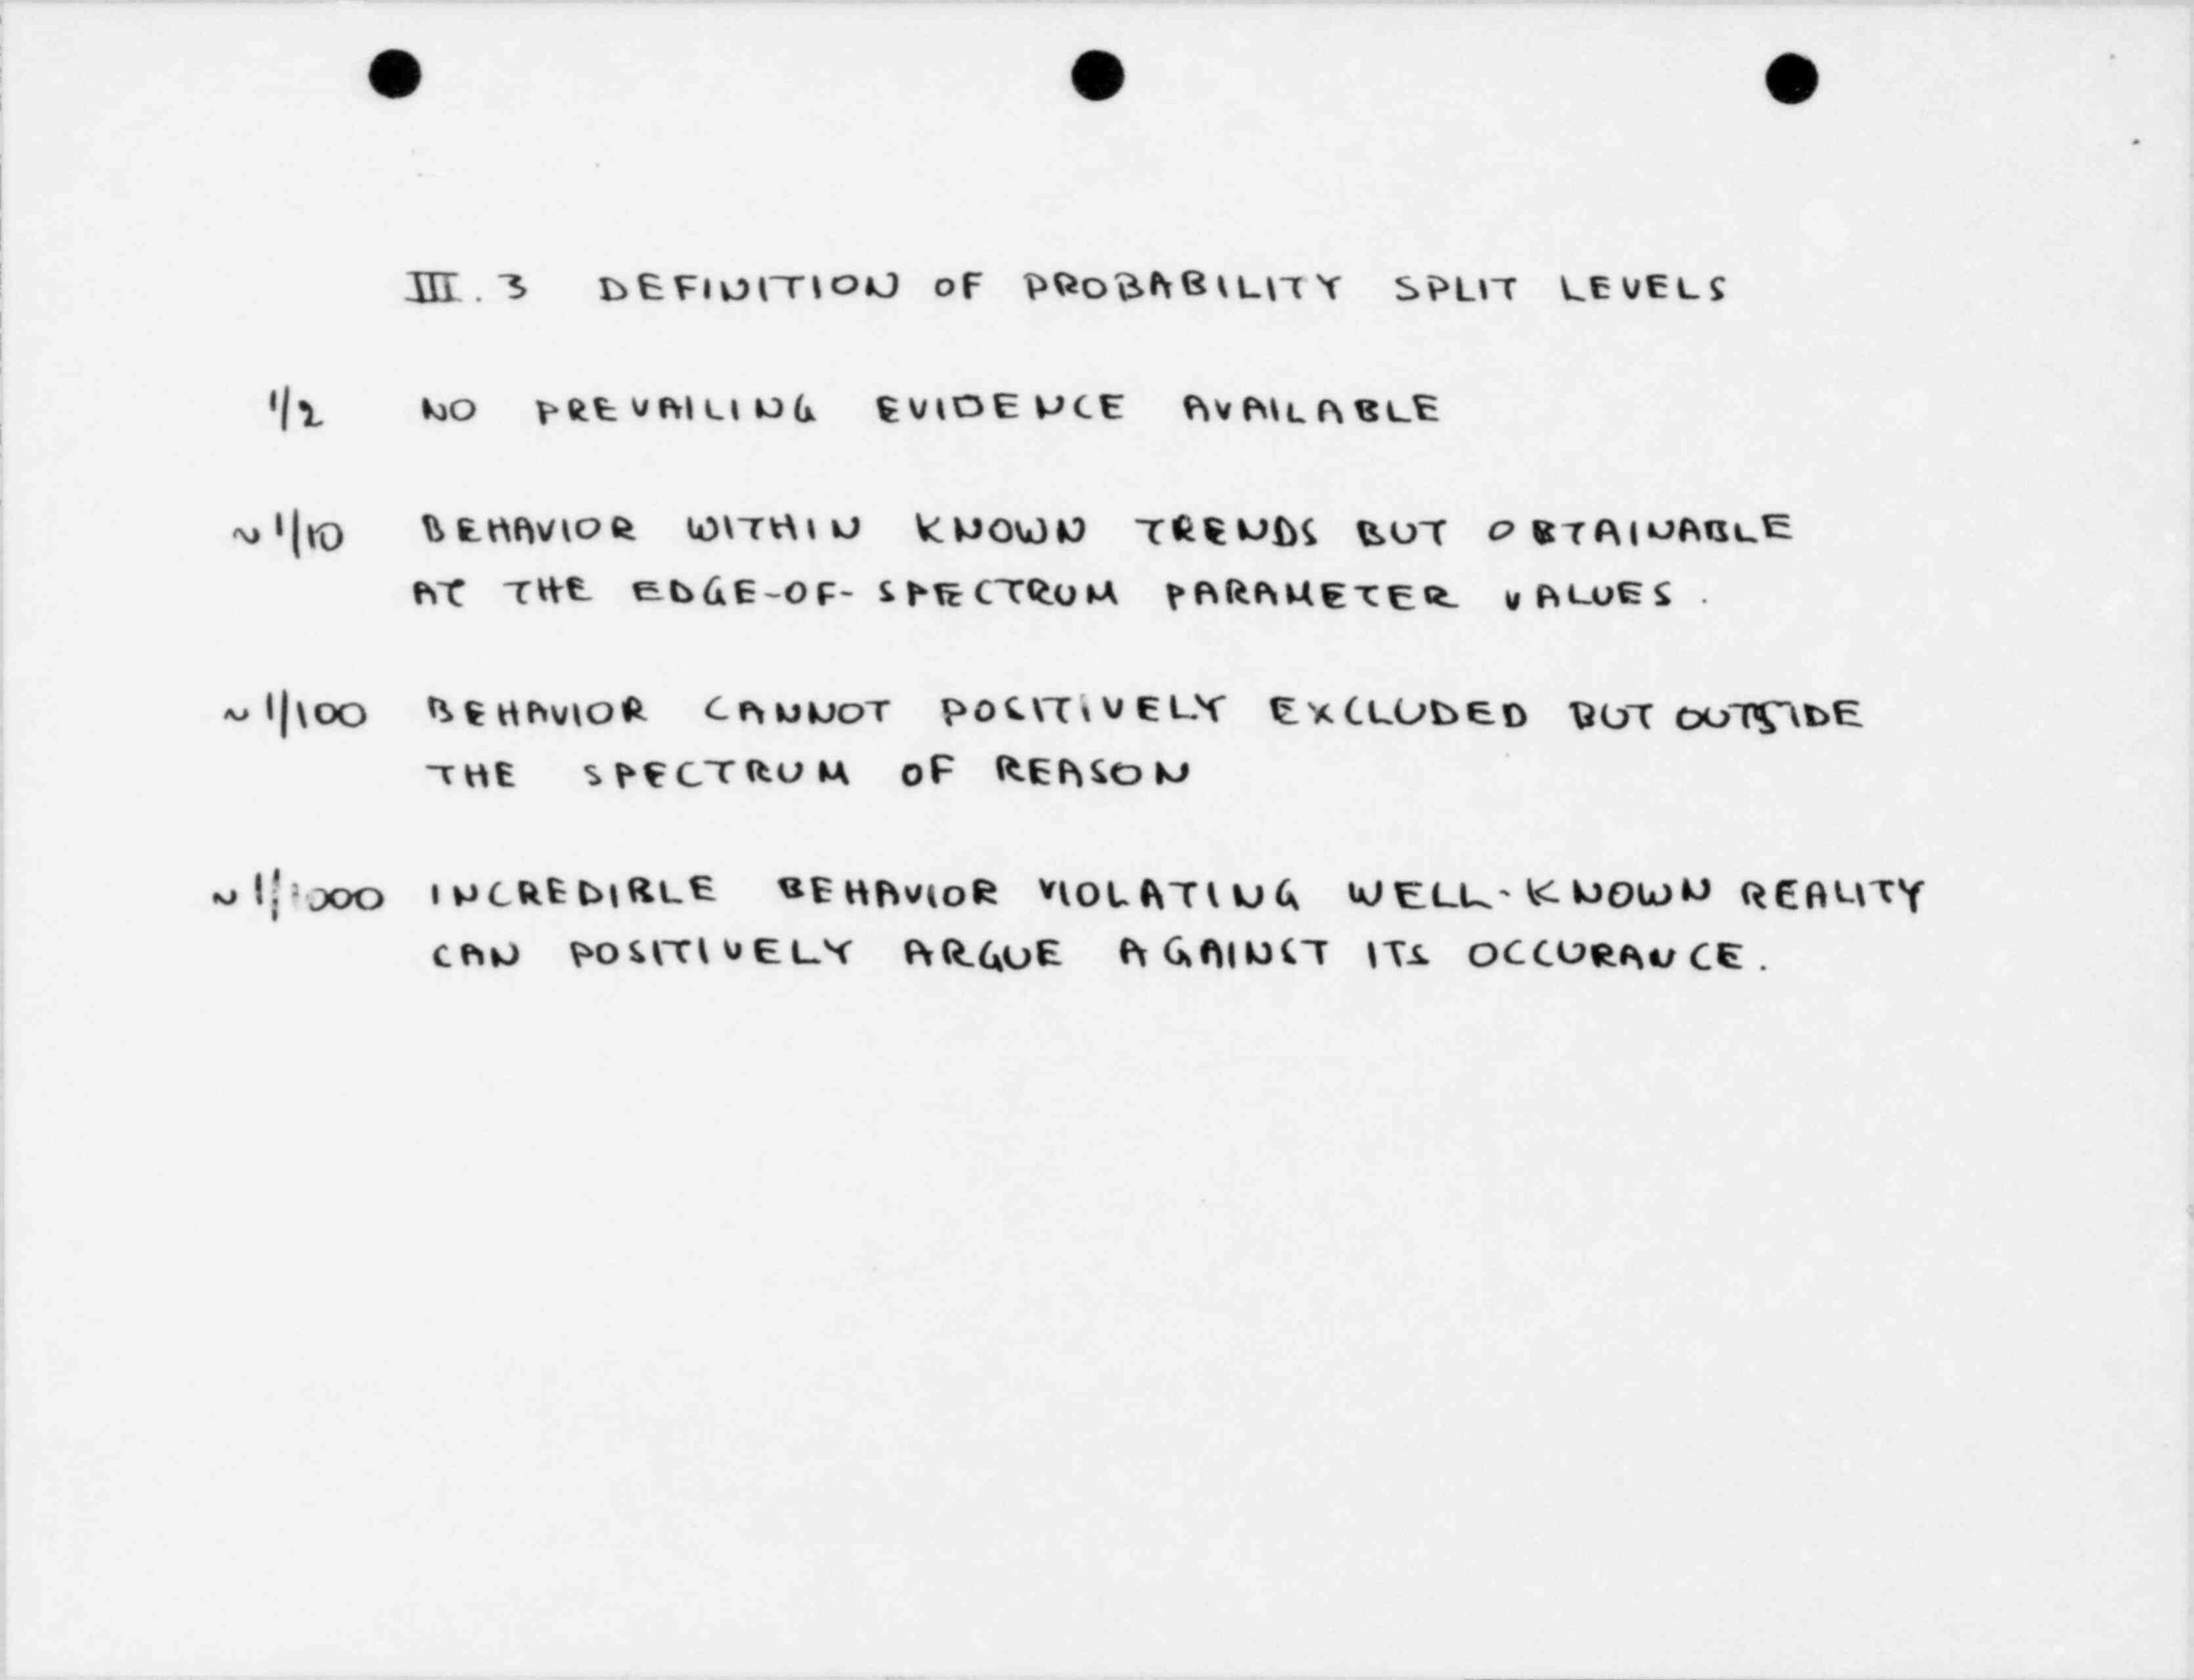 III. 3 DEFINITION OF PROBABILITY SPLIT LEVELS
1/2 NO PREVAILING EVIDENCE AVAILABLE
~1/10 BEHAVIOR WITHIN KNOWN TRENDS BUT OBTAINABLE
AT THE EDGE-OF-SPECTRUM PARAMETER VALUES.
~1/100 BEHAVIOR CANNOT POSITIVELY EXCLUDED BUT OUTSIDE
THE SPECTRUM OF REASON
~1/1000 INCREDIBLE BEHAVIOR VIOLATING WELL-KNOWN REALITY
CAN POSITIVELY ARGUE AGAINST ITS OCCURANCE.